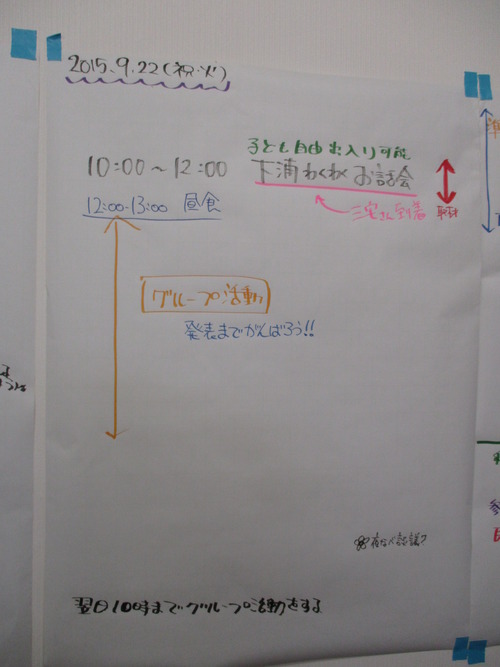 2015.9.22(祝・火)
子ども自由出入り可能
10:00〜12:00 下浦わくわくお話会
三宅さん到着
取材
12:00-13:00 昼食
グループ活動
発表までがんばろう!!
翌日10時までグループ活動をする